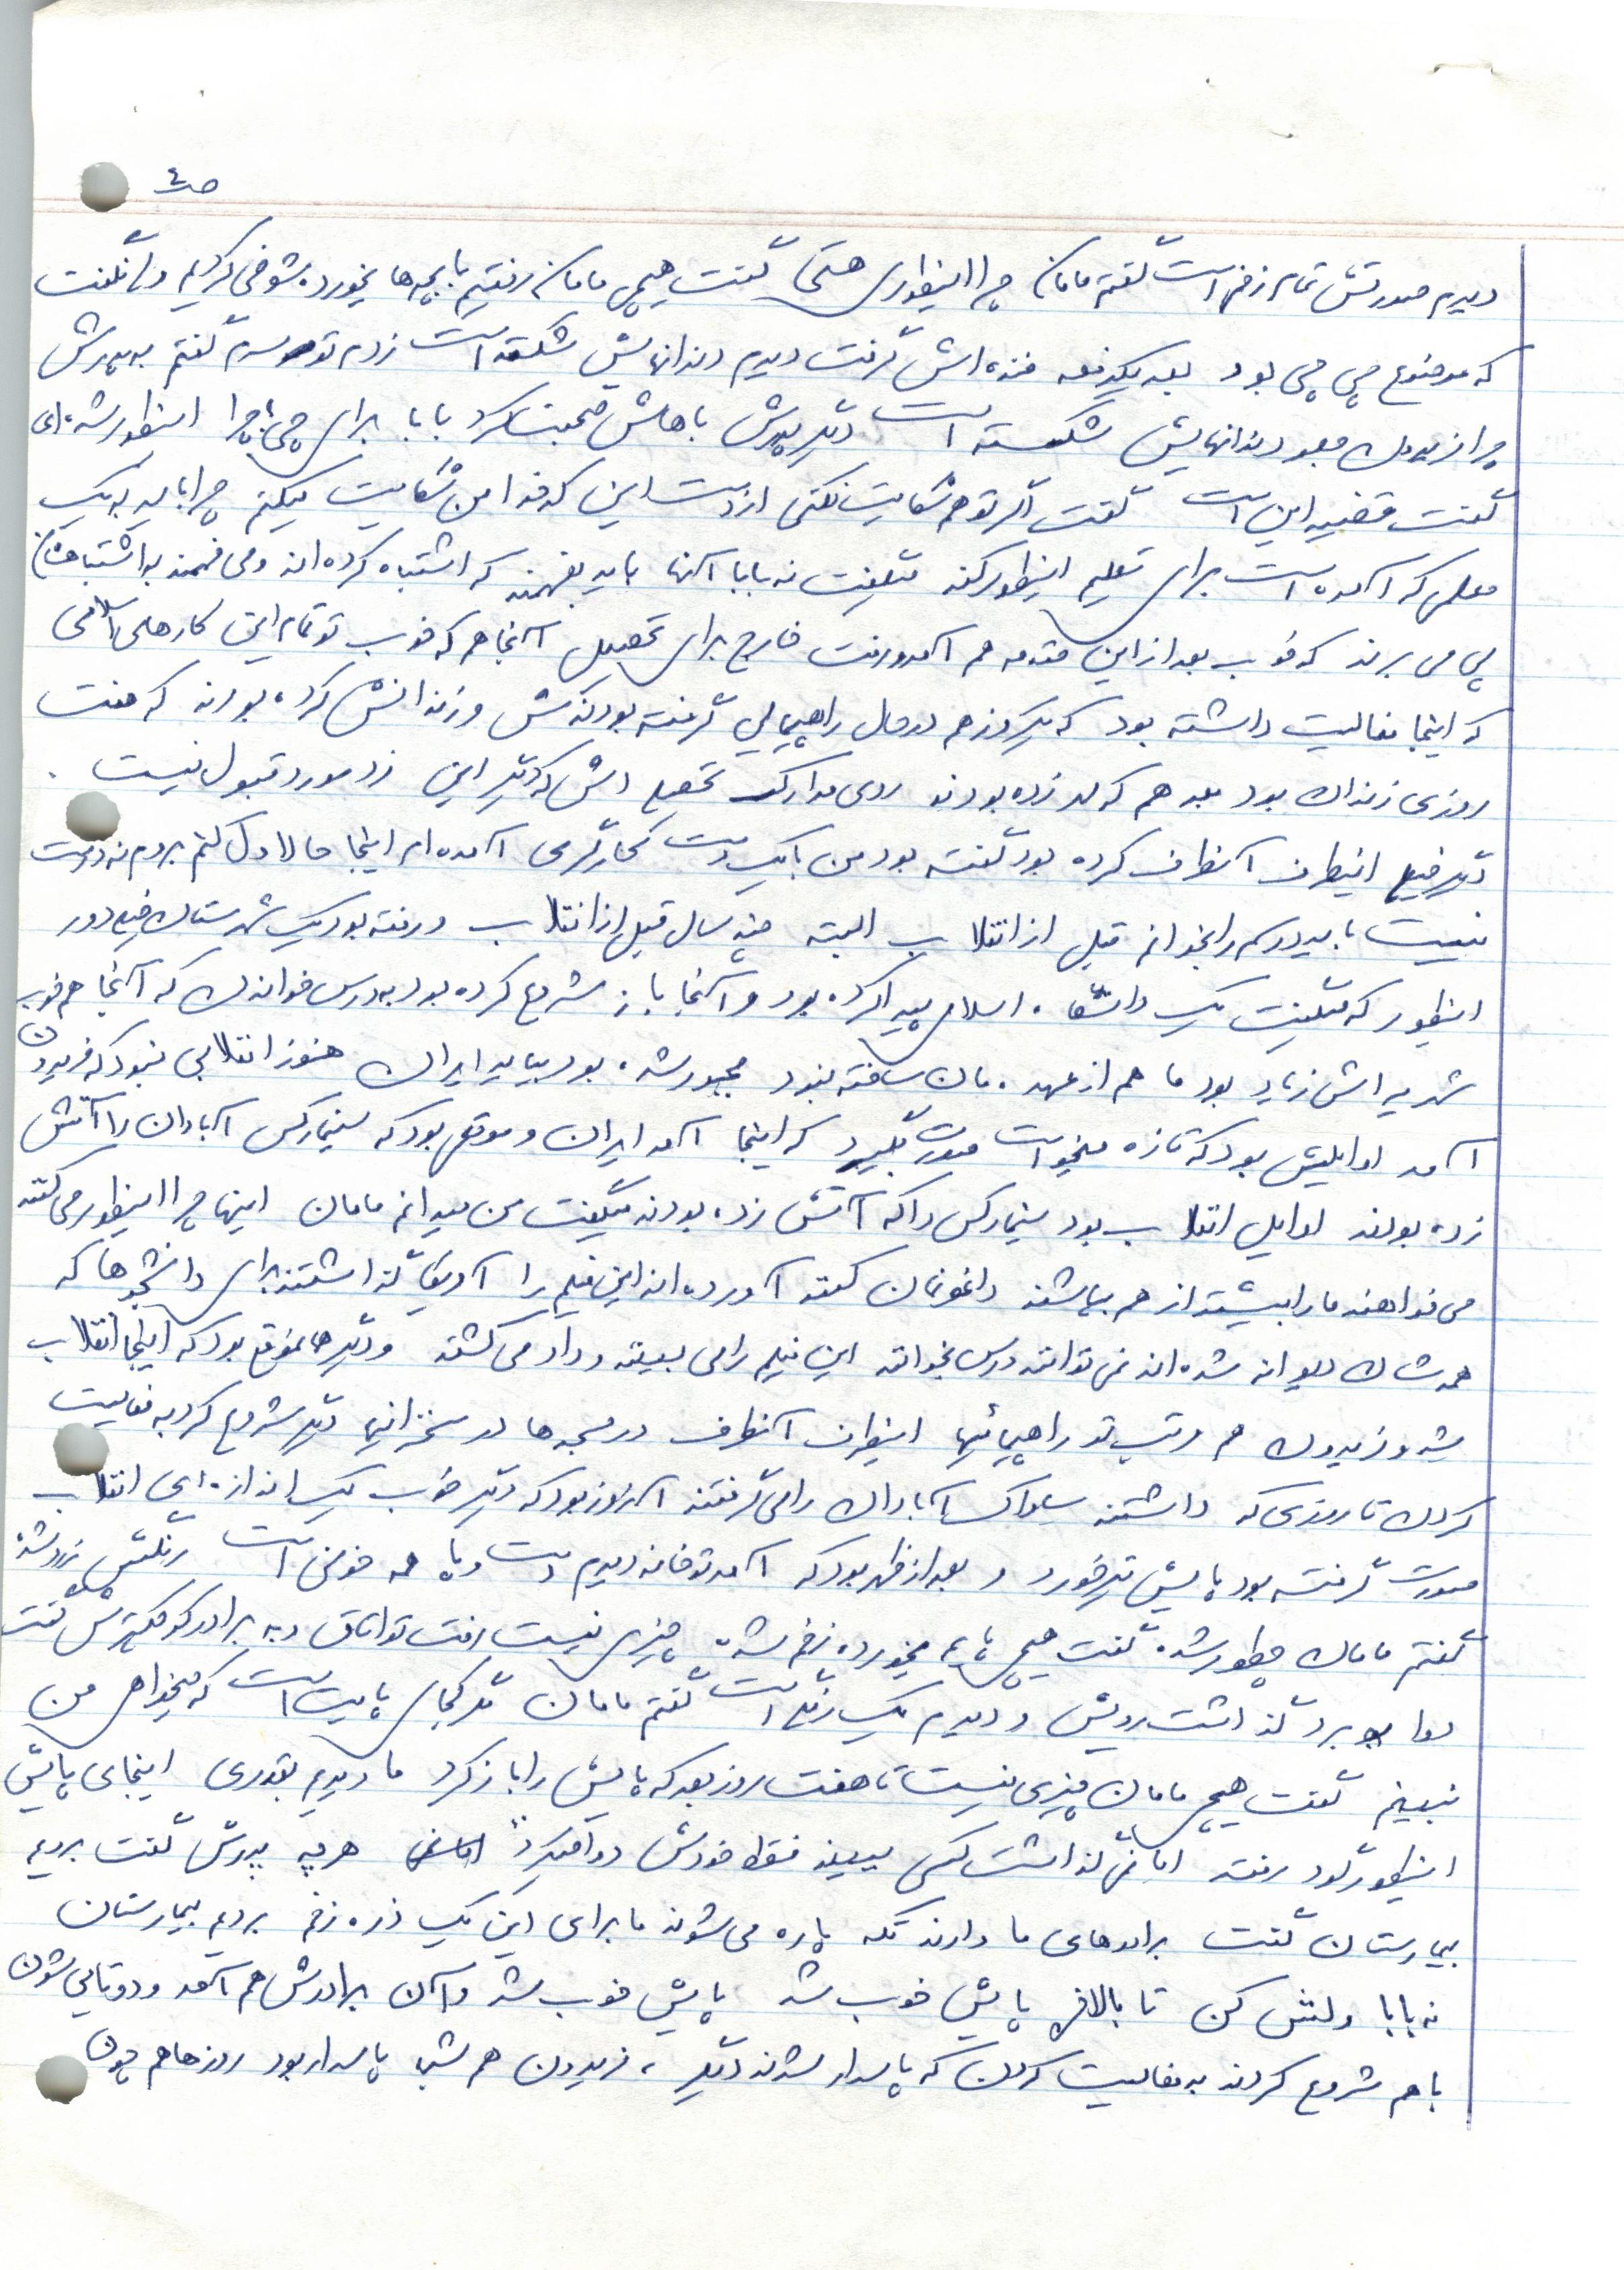 ص ٤
دیدم صورتش تمام زخم است گفتم مامان چرا اینطوری هستی گفت هیچی مامان رفتیم با بچه‌ها یخورده شوخی کردیم ولی نگفت
که موضوع چی چی بود بعد یکدفعه خنده‌اش گرفت دیدم دندانهایش شکسته است زدم تو سرم گفتم به پدرش
چرا فریدون جلو دندانهایش شکسته است دیگر پدرش باهاش صحبت کرد بابا برای چی چرا اینطور شده‌ای
گفت قضیه این است گفت اگر تو هم شکایت نکنی از دست این که خدا من شکایت میکنم چرا باید به یک
معلمی که آمده است برای تعلیم اینطور کند میگفت نه بابا آنها باید بفهمند که اشتباه کرده‌اند و می فهمند به اشتباهشان
پی می برند که خوب بعد از این مقدمه هم آمد و رفت خارج برای تحصیل آنجا هم که خوب تو تمام این کارهای اسلامی
که اینجا فعالیت داشته بود که یکروز هم در حال راهپیمایی گرفته بودنش و زندانش کرده بودند که هفت
روزی زندان بود بعد هم که مهر زده بودند روی مدارک تحصیلی اش که دیگر این زد مورد قبول نیست .
دیگر خیلی اینطرف آنطرف کرده بود گفته بود من با یک دست کارگری آمده ام اینجا حالا ول کنم بروم نه درست
نیست باید درسم را بخوانم قبل از انقلاب البته چند سال قبل از انقلاب و رفته بود یک شهرستان خیلی دور
اینطور که میگفت یک دانشگاه اسلامی پیدا کرده بود و آنجا باز شروع کرده بود به درس خواندن که آنجا هم خوب
شهریه اش زیاد بود ما هم از عهده مان ساخته نبود مجبور شده بود بیاید ایران هنوز انقلابی نبود که فریدون
آمد اوایلش بود که تازه میخواست صورت بگیرد که اینجا آمد ایران و موقعی بود که سینما رکس آبادان را آتش
زده بودند اوایل انقلاب بود سینما رکس را که آتش زده بودند میگفت من میدانم مامان اینها چرا اینطور می کنند
می خواهند ما را بیشتر از هم بپاشند داغونمان کنند آورده اند این فیلم را آمریکا گذاشتند برای دانشجوها که
همه‌شان دیوانه شده‌اند نمی توانند درس بخوانند این فیلم را می بینند و داد می کشند و دیگر همانموقع بود که اینجا انقلاب
شد و فریدون هم مرتب تو راهپیمائیها اینطرف آنطرف در مسجدها در سخنرانیها دیگر شروع کرد به فعالیت
کردن تا روزی که داشتند ساواک آبادان را می گرفتند آنروز بود که دیگر خوب یک اندازه‌ای انقلاب
صورت گرفته بود پایش تیر خورد و بعد از ظهر بود که آمد تو خانه دیدم دست و پا همه خونی است رنگش زرد شده
گفتم مامان چطور شده گفت هیچی پایم یخورده زخم شده چیزی نیست رفت تو اتاق و به برادر کوچکترش گفت
دوا ببر گذاشت رویش و دیدم یک زخمی است گفتم مامان مگر کجای پایت است که میخواهی من
نبینم گفت هیچی مامان چیزی نیست تا هفت روز بعد که پایش را باز کرد ما دیدیم بقدری اینجای پایش
اینطور گود رفته اما نمی گذاشت کسی ببیند فقط خودش دوا میکرد هر چه پدرش گفت برویم
بیمارستان گفت برادرهای ما دارند تکه پاره می شوند ما برای این یک ذره زخم برویم بیمارستان
نه بابا ولش کن تا بالاخره پایش خوب شد پایش خوب شد و آن برادرش هم آمد و دوتایی شون
با هم شروع کردند به فعالیت کردن که پاسدار شدند دیگر ، فریدون هم شبها پاسدار بود روزها هم چون